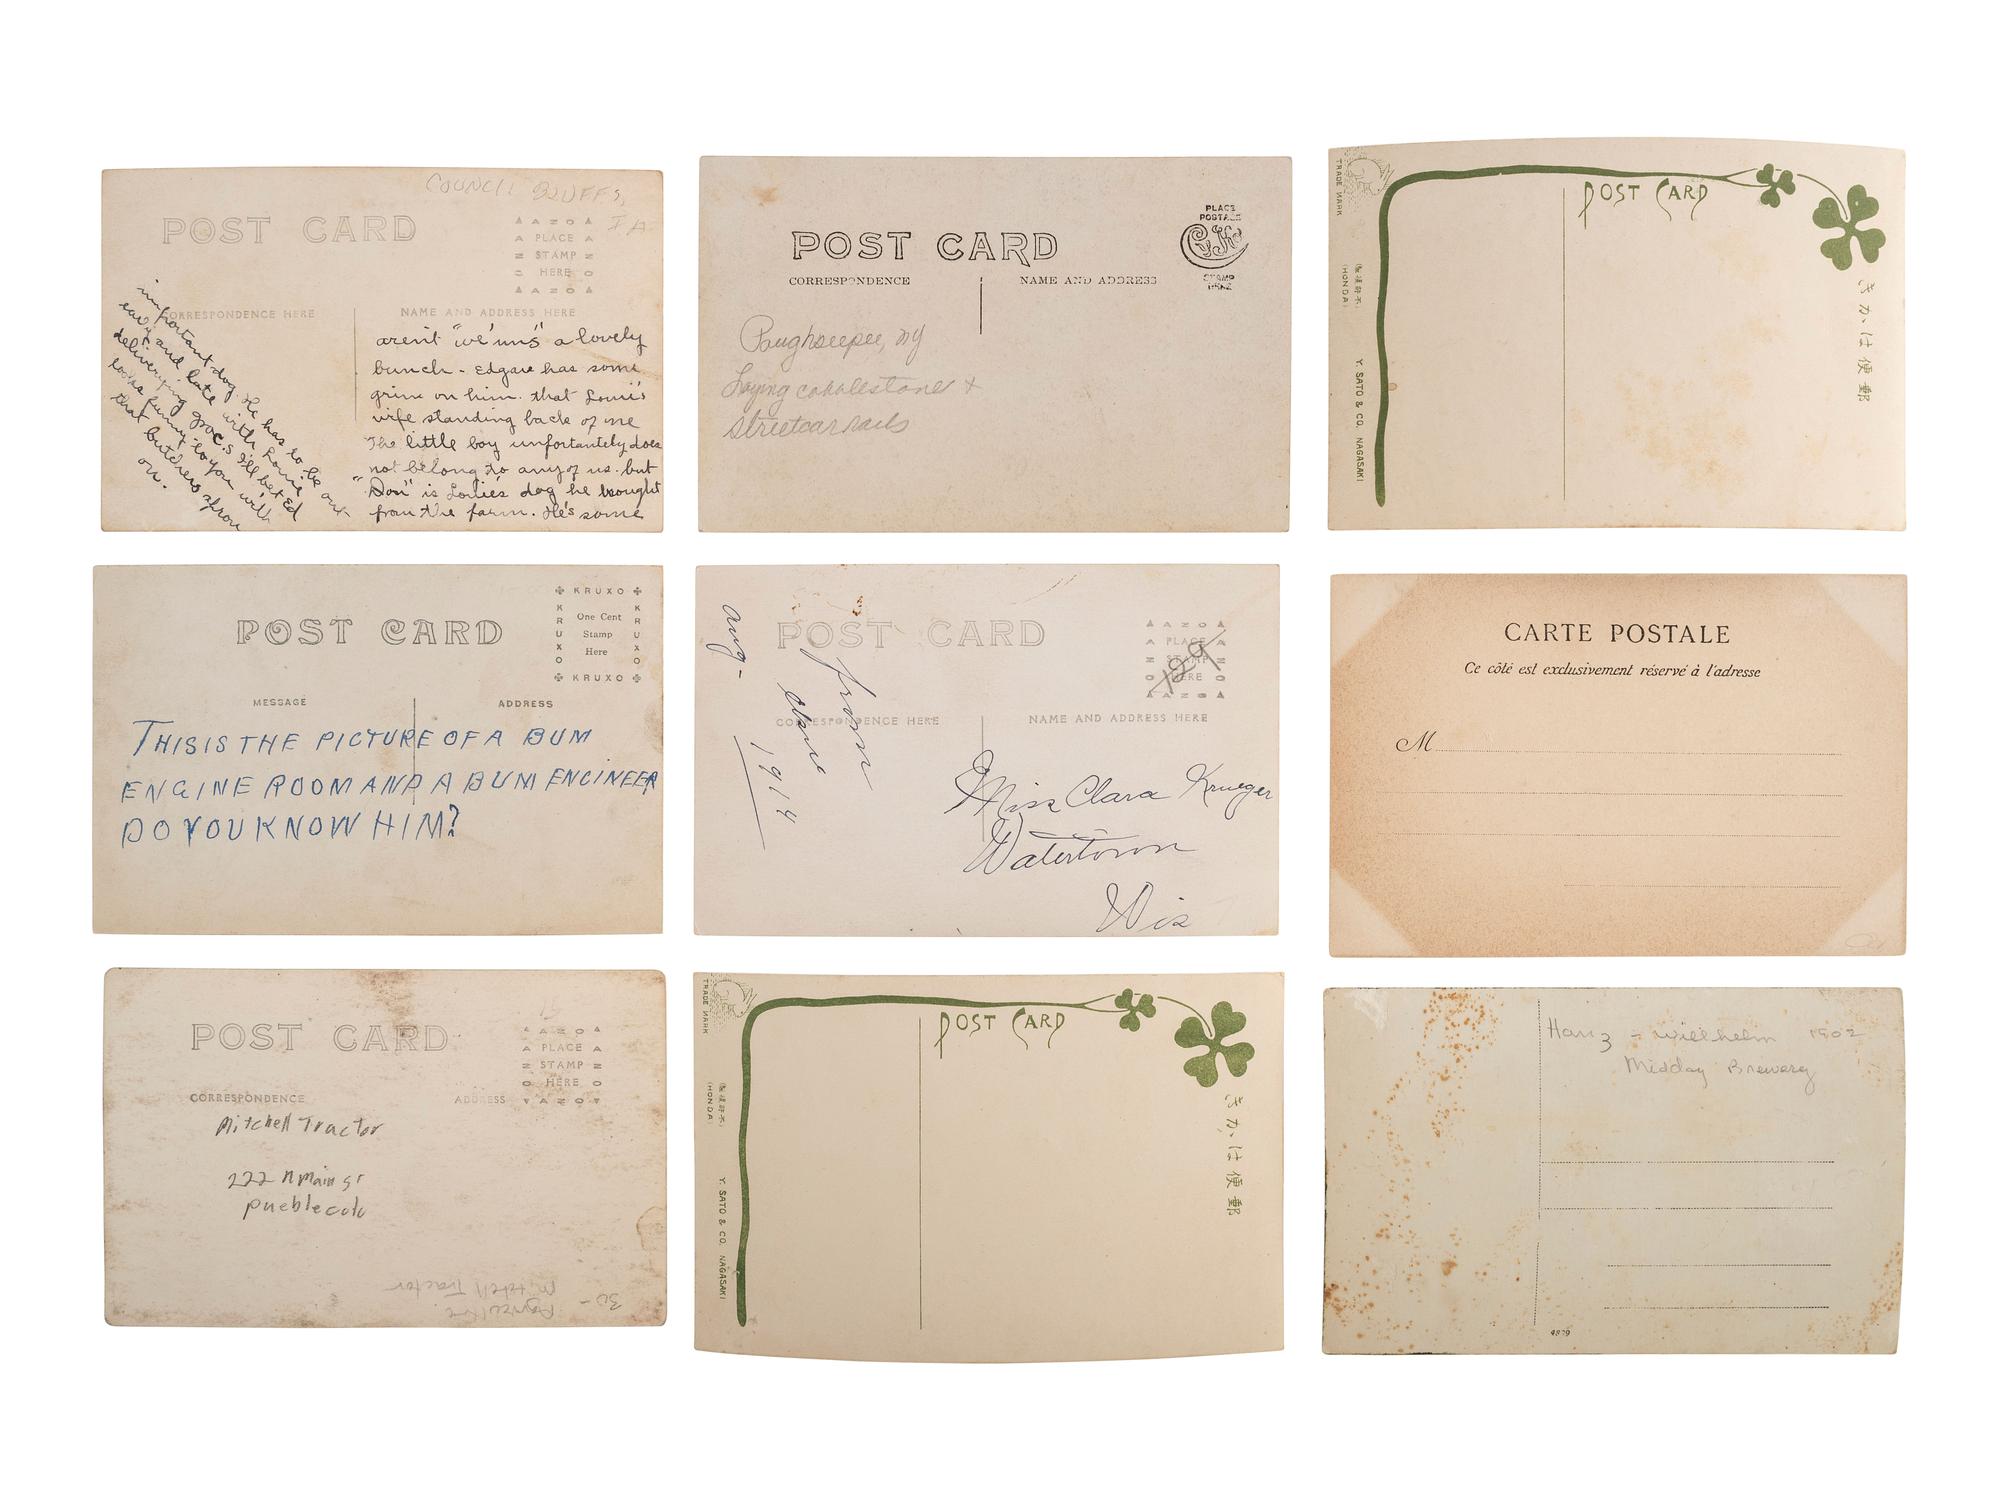 COUNCIL BLUFFS,
IA
POST CARD
AZO
PLACE
STAMP
HERE
AZO
CORRESPONDENCE HERE
NAME AND ADDRESS HERE
arent "we'uns" a lovely
bunch - Edgar has some
grin on him. that Louis'
wife standing back of me
The little boy unfortantely does
not belong to any of us. but
"Don" is Louie's dog he brought
from the farm. He's some
important dog. He has to be out
early and late with Louie
delivering groc's I'll bet Ed
looks funny to you with
that butchers apron
on.
POST CARD
PLACE
POSTAGE
CyKo
STAMP
HERE
CORRESPONDENCE
NAME AND ADDRESS
Poughkeepsie, NY
Laying cobblestones +
streetcar rails
TRADE MARK
POST CARD
(HONDA)
Y. SATO & CO. NAGASAKI
きかは便郵
POST CARD
KRUXO
KRUXO
KRUXO
One Cent
Stamp
Here
KRUXO
MESSAGE
ADDRESS
THIS IS THE PICTURE OF A BUM
ENGINE ROOM AND A BUM ENGINEER
DO YOU KNOW HIM?
POST CARD
AZO
PLACE
STAMP
HERE
AZO
CORRESPONDENCE HERE
NAME AND ADDRESS HERE
Aug-
1914
from
Miss Clara Krueger
Watertown
Wis
CARTE POSTALE
Ce côté est exclusivement réservé à l'adresse
M
POST CARD
AZO
PLACE
STAMP
HERE
AZO
CORRESPONDENCE
ADDRESS
Mitchell Tractor
222 N Main St
Pueblo colo
30-
Mitchell Tractor
TRADE MARK
POST CARD
(HONDA)
Y. SATO & CO. NAGASAKI
きかは便郵
Hanz - Willhelm 1902
Midday Brewery
4879